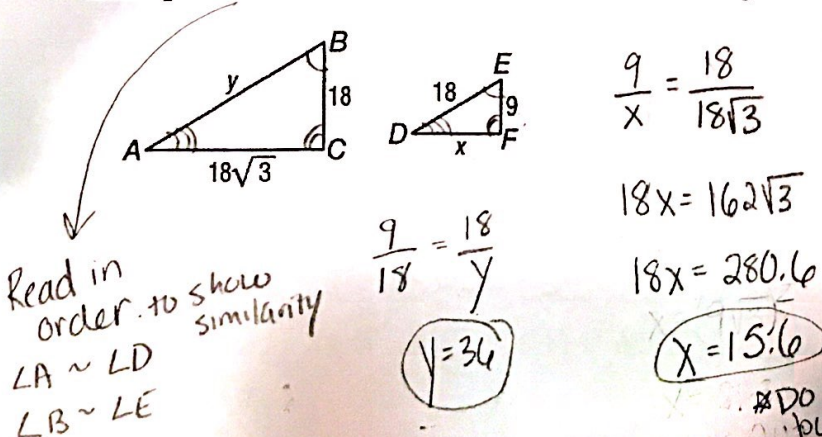 B
y
18
A
C
18√3
E
18
9
D
x
F
9/x = 18/18√3
18x = 162√3
18x = 280.6
x = 15.6
9/18 = 18/y
y = 36
Read in
order to show
similarity
∠A ~ ∠D
∠B ~ ∠E
DO